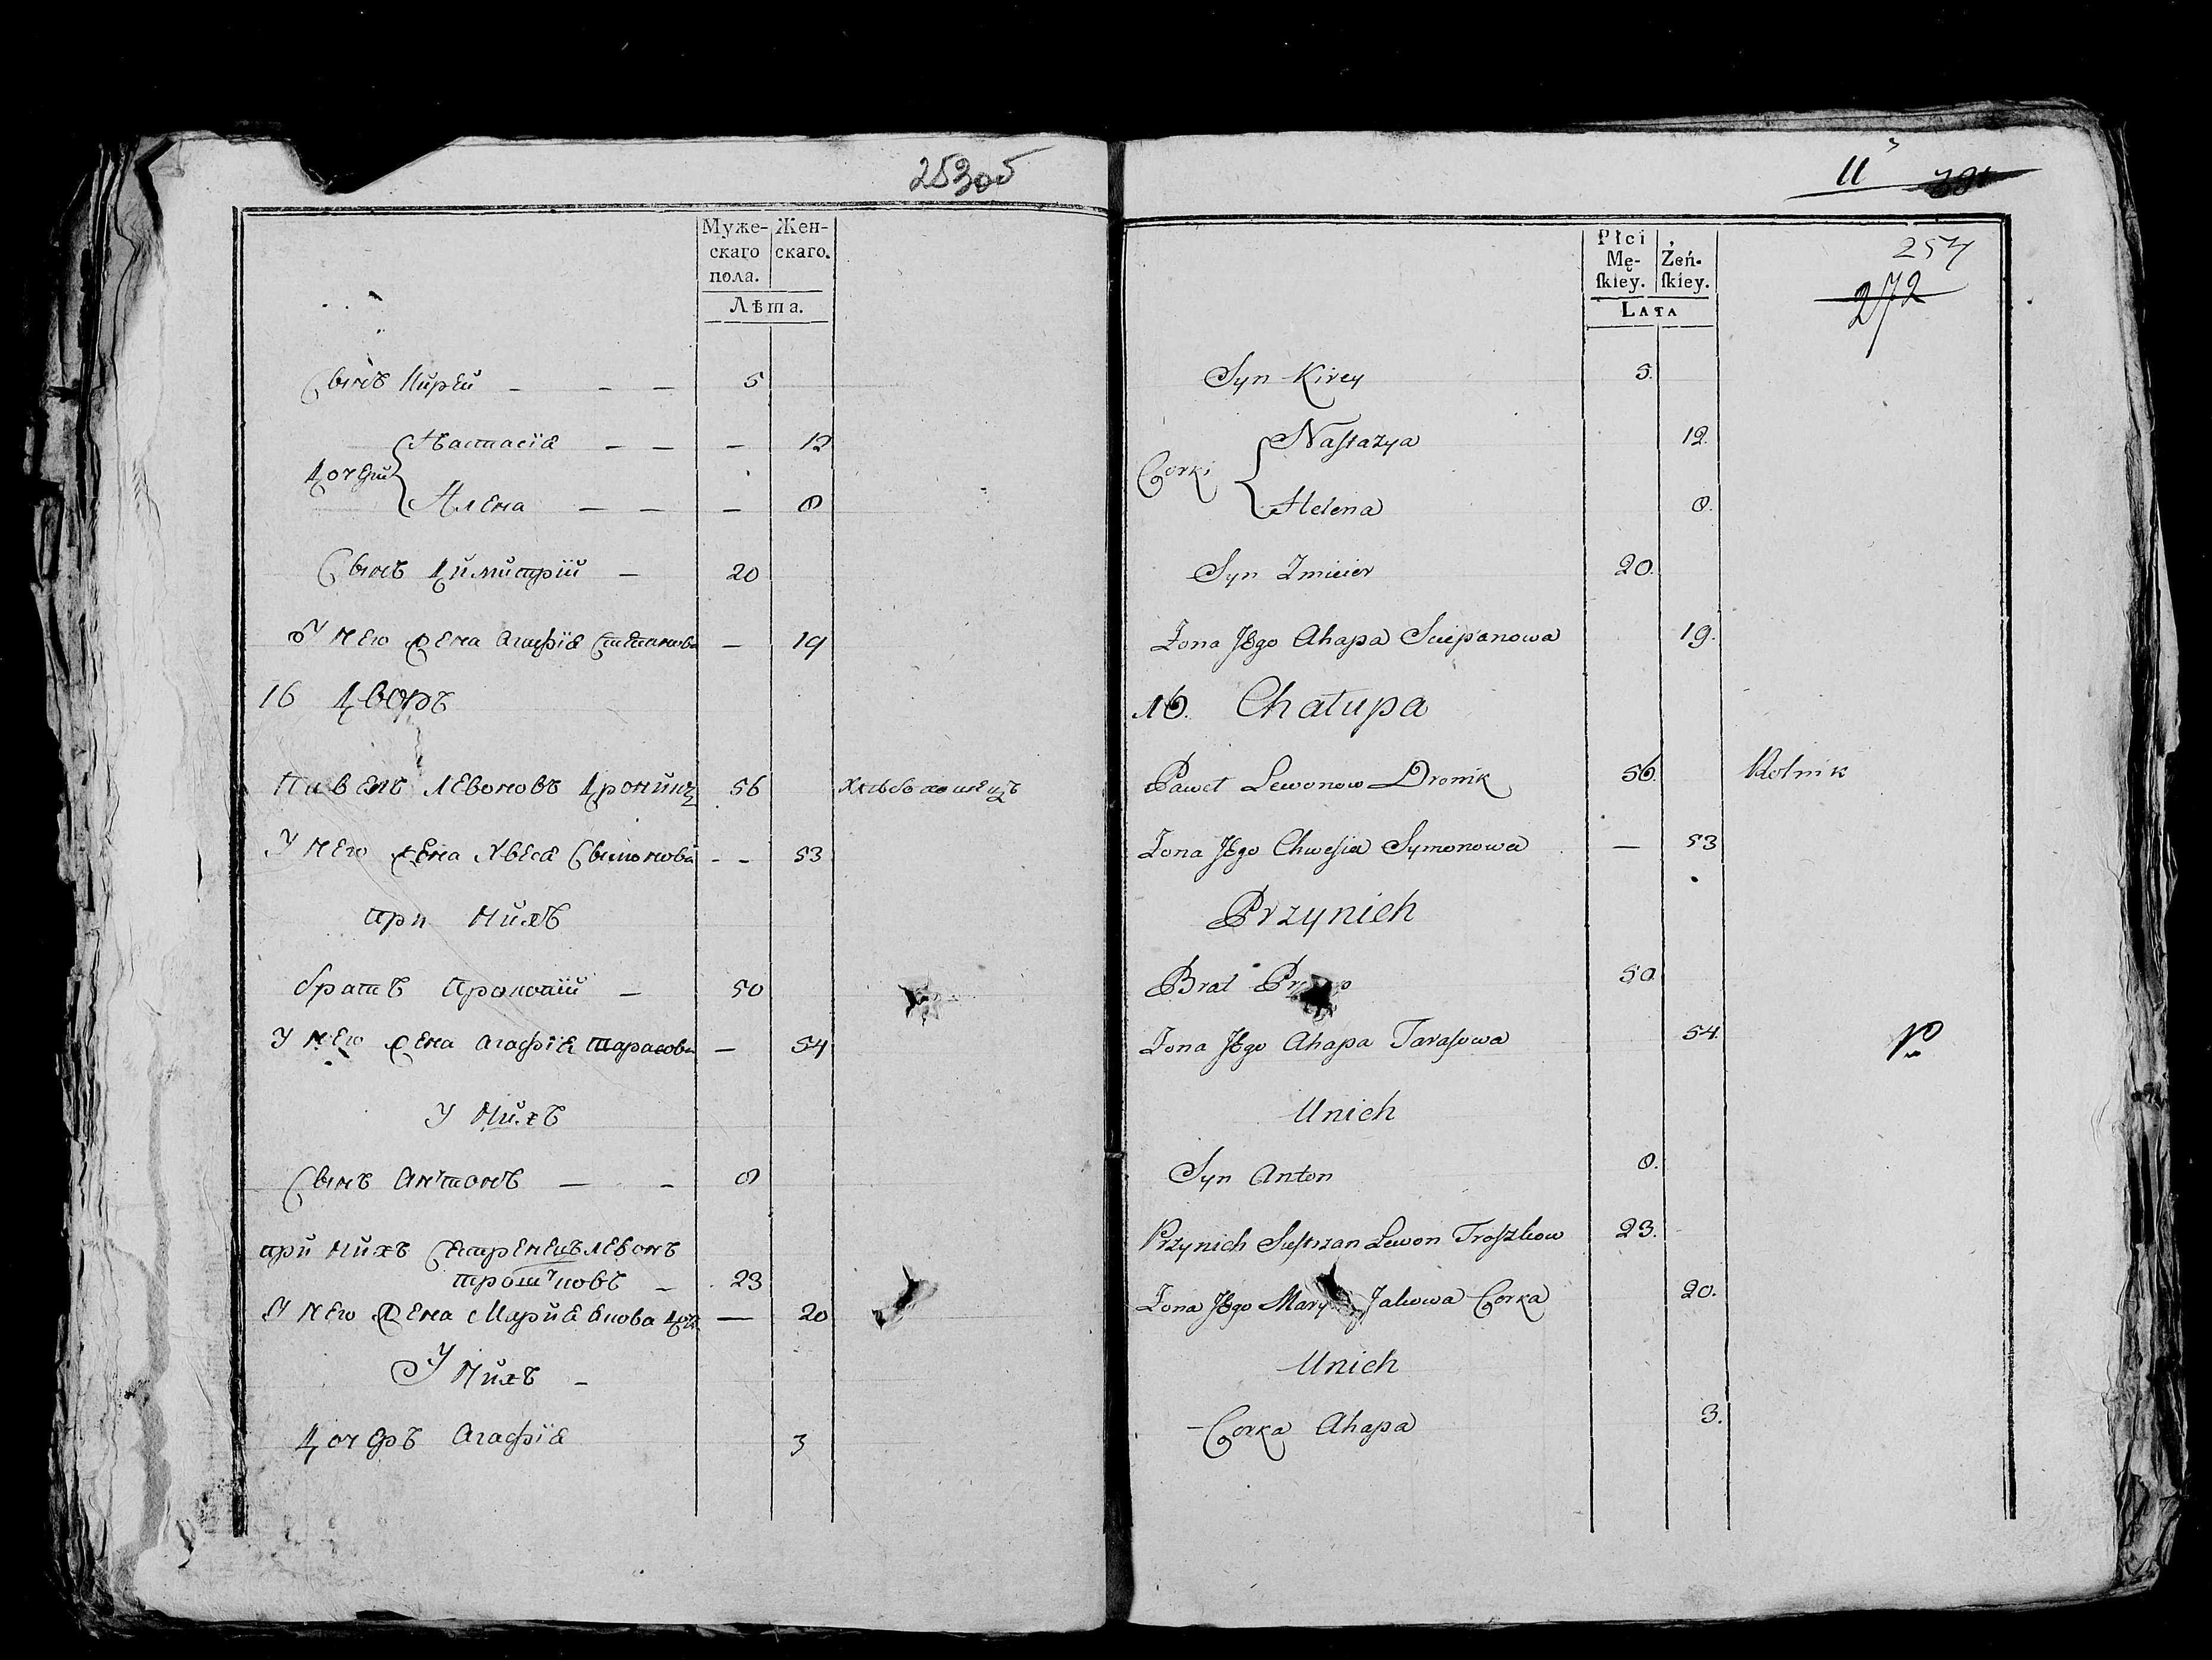 253об
Муже-
скаго
пола.
Жен-
скаго.
Лѣта.
Сынъ Кирей – – – 5
Дочери
Настасія – – – 12
Алена – – – 8
Сынъ Димитрій – 20
У него жена Агафія Степанова – 19
16 Дворъ
Павелъ Левоновъ Дроникъ 56 Хлѣбопашецъ
У него жена Хвеся Сымонова – – 53
при нихъ
братъ Прокопій – 50
У него жена Агафія Тарасова – 54
У нихъ
Сынъ Антонъ – – 8
при нихъ Сестренецъ Левонъ
Трошковъ – 23
У него жена Марія Якова доч – 20
У нихъ –
Дочеръ Агафія 3
11
254
272
Płci
Mę-
ſkiey.
Żeń-
ſkiey.
LATA
Syn Kirey 5.
Corki
Naſtazya 12.
Helena 8.
Syn Zmicier 20.
Zona Jego Ahapa Sciepanowa 19.
16. Chałupa
Paweł Lewonow Dronik 56. Rolnik
Zona Jego Chweſia Symonowa – 53
Przynich
Brat 50
Zona Jego Ahapa Taraſowa 54.
Unich
Syn Anton 8.
Przynich Sieſtrzan Lewon Troſzkow 23.
Zona Jego Mary Jakowa Corka 20.
Unich
Corka Ahapa 3.